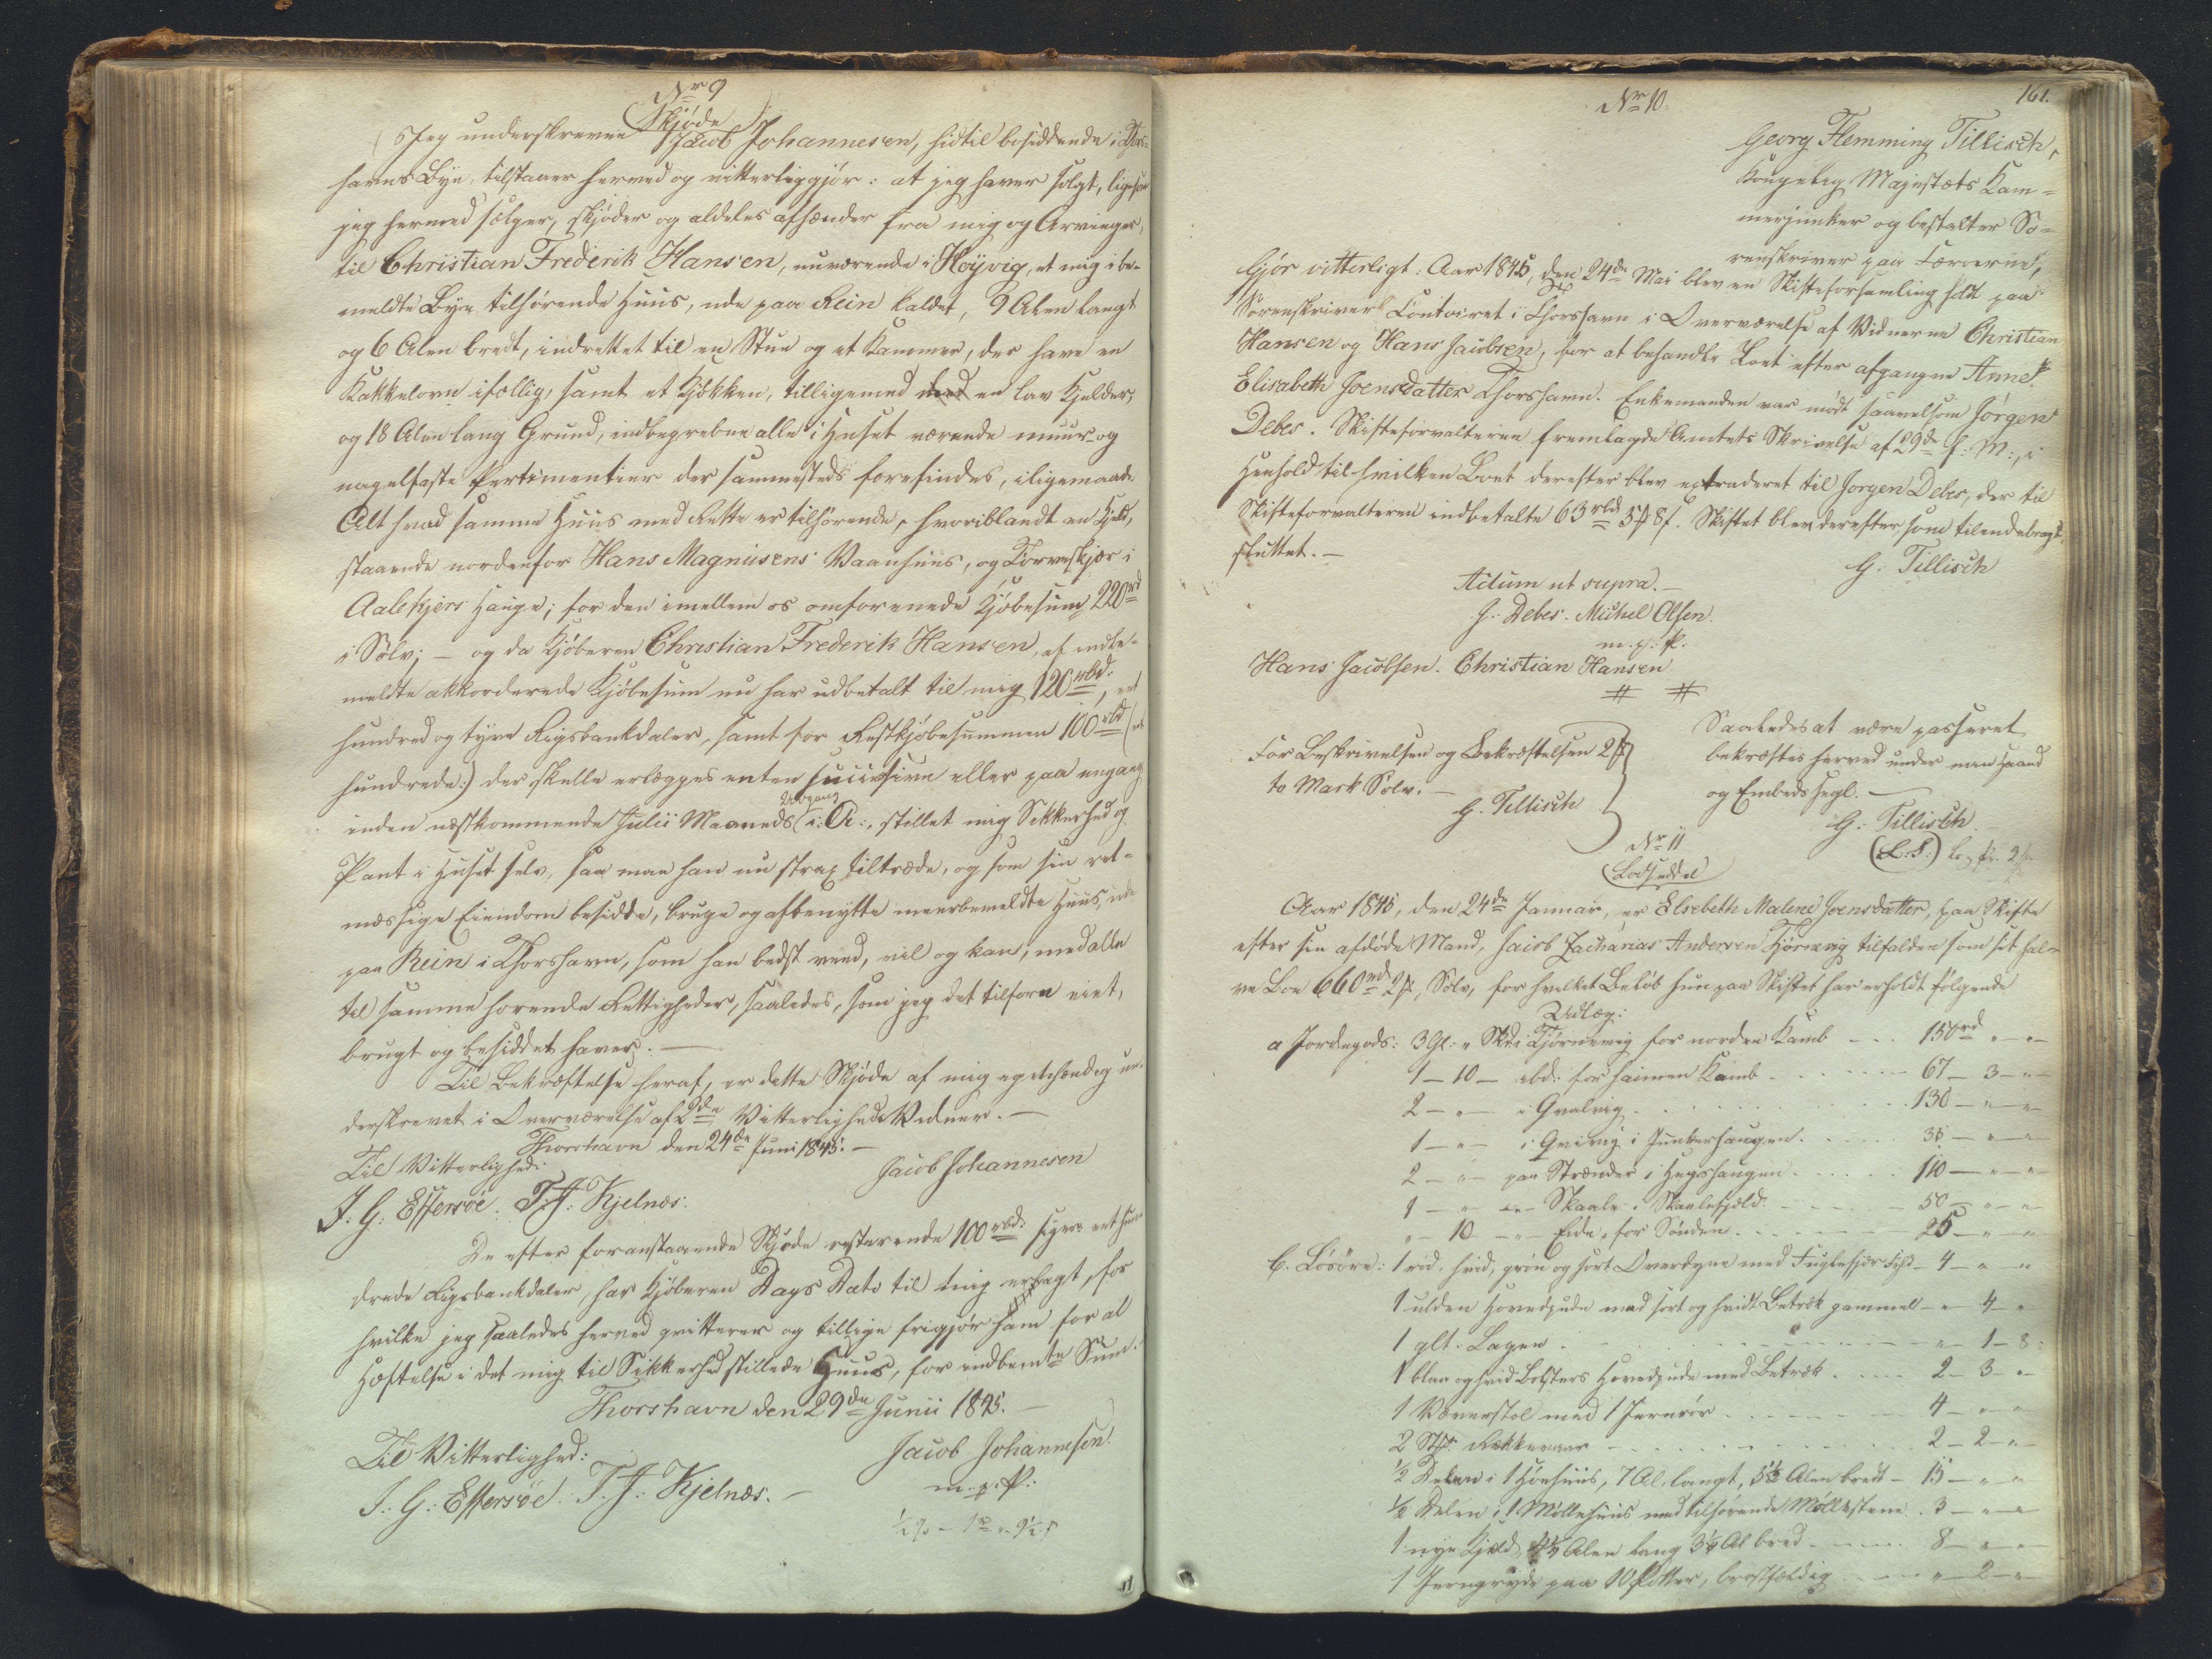 Nr 9
Skjøde
Jeg underskrevne Jacob Johannesen, hidtil bosiddende i Thors-
havns Bye, tilstaaer herved og vitterliggjør: at jeg haver solgt, ligesom
jeg hermed sælger, skjøder og aldeles afhænder fra mig og Arvinger,
til Christian Frederik Hansen, nuværende i Høÿvig, et mig i be-
meldte Bye tilhørende Huus, ude paa Rein kaldet, 9 Alen langt
og 6 Alen bredt, indrettet til en Stue og et Kammer, der have en
Kakkelovn ifællig, samt et Kjøkken, tilligemed en lav Kjelder,
og 18 Alen lang Grund, indbegrebne alle i Huset værende muur- og
nagelfaste Pertinentier der sammesteds forefindes, iligemaade
Alt hvad samme Huus med Rette er tilhørende, hvoriblandt en Hjeld,
staaende nordenfor Hans Magnusens Vaanhuus, og Tørveskjær i
Aalekjers Hauge; for den imellem os omforenede Kjøbesum 220 rd
i Sølv; — og da Kjøberen Christian Frederik Hansen, af indbe-
meldte akkorderede Kjøbesum nu har udbetalt til mig 120 rbd:, et
hundred og tyve Rigsbankdaler, samt for Restkjøbesummen 100 rbd (et
hundrede:) der skulle erlægges enten successive eller paa engang
inden næstkommende Julii Maaneds Udgang i: A:, stillet mig Sikkerhed og
Pant i Huset selv, saa maa han nu strax tiltræde, og som sin ret-
mæssige Eiendom besidde, bruge og afbenytte meerbemeldte Huus, ude
paa Rein i Thorshavn, som han bedst veed, vil og kan, med alle
til samme hørende Rettigheder, saaledes, som jeg det tilforn eiet,
brugt og besiddet haver. —
Til Bekræftelse heraf, er dette Skjøde af mig egenhændig un-
derskrevet i Overværelse af 2de Vitterligheds Vidner. —
Thorshavn den 24de Juni 1845. —
Til Vitterlighed:
Jacob Johannesen
J. G: Effersøe. T. J: Kjelnæs:
De efter foranstaaende Skjøde resterende 100 rbd: siger et hun-
drede Rigsbankdaler, har Kjøberen Dags Dato til mig erlagt, for
hvilke jeg saaledes herved qvitterer og tillige frigjør ham for al
Hæftelse i det mig til Sikkerhed stillede Huus, for indbemte Sum.
Thorshavn den 29de Junii 1845. —
Til Vitterlighed:
Jacob Johannesen
m. p: P:
J. G: Effersøe. T. J: Kjelnæs. —
161.
Nr 10.
Georg Flemming Tillisch,
Kongelig Majestæts Kam-
merjunker og bestalter So-
renskriver paa Færøerne,
Gjør vitterligt: Aar 1845, den 24de Mai blev en Skifteforsamling holdt paa
Sorenskriver Contoiret i Thorshavn i Overværelse af Vidnerne Christian
Hansen og Hans Jacobsen, for at behandle Boet efter afgangne Anne
Elisabeth Joensdatter Thorshavn. Enkemanden var mødt saavelsom Jørgen
Debes. Skifteforvalteren fremlagde Amtets Skrivelse af 29de f: M:, i
Henhold til hvilken Boet derefter blev extraderet til Jørgen Debes, der til
Skifteforvalteren indbetalte 63 rbd 3 ℔ 8 s. Skiftet blev derefter, som tilendebragt,
sluttet. —
G. Tillisch
Actum ut supra. —
J: Debes. Michel Olsen.
m. p: P.
Hans Jacobsen. Christian Hansen
For Beskrivelsen og Bekræftelsen 2 ℔
to Mark Sølv. —
G. Tillisch
Saaledes at være passeret
bekræftes herved under min Haand
og Embeds Segl. —
G: Tillisch.
(L: S:)
Nr 11
Lodseddel
Aar 1845, den 24de Januar, er Elsebeth Malene Joensdatter, paa Skifte
efter sin afdøde Mand, Jacob Zacharias Andersen Tjørnevig tilfalden som sit hal-
ve Boe 660 rd 2 ℔, Sølv, for hvilket Beløb hun paa Skiftet har erholdt følgende
Udlæg:
a Jordegods: 3 Gl: „ Skd i Tjørnevig for norden Kamb - - - 150 rd „ — „ —
1 — 10 — ibd: for heimen Kamb - - - 67 — 3 — „ —
2 — „ — i Qvalvig - - - 130 — „ — „ —
1 — „ — i Qvivig i Junkerhaugen - - - 35 — „ — „ —
2 — „ — paa Strænder i Hegshaugen - - - 110 — „ — „ —
1 — „ — „ — Skaale i Skaalefjeld - - - 50 — „ — „ —
„ — 10 — „ — Eide, for Sønden - - - 25 — „ — „ —
b. Løsøre: 1 rød, hvid, grøn og sort Overdyne med Fuglefjer Fyld - 4 — „ — „
1 ulden Hovedpude med sort og hvidt Betræk gammel - „ — 4 — „
1 glt. Lagen - - - „ — 1 — 8 :
1 blaa og hvid Bolsters Hovedpude med Betræk - - - 2 — 3 — „ —
1 Væverstol med 1 Jernrør - - - 4 — „ — „
2 Stkr. Rækkevaar - - - 2 — 2 — „ —
½ Delen i 1 Høehuus, 7 Al. langt, 5½ Alen bredt — 15 — „ — „
⅙ Delen i 1 Møllehuus med tilhørende Møllestene . 3 — „ — „
1 nye Hjeld, 4½ Alen lang 3¼ Al bred - - - 8 — „ — „
1 Jerngryde paa 10 Potter, brøstfældig - - - „ — 2 — „ —